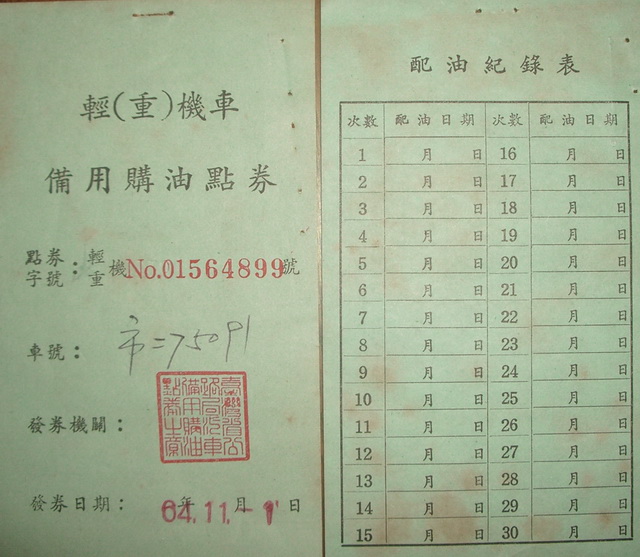 輕(重)機車
備用購油點券
點券字號：輕重機No.01564899號
車號：市=75091
發券機關：
發券日期：64年11.月-1日
配油紀錄表
次數 配油日期 次數 配油日期
1 月 日 16 月 日
2 月 日 17 月 日
3 月 日 18 月 日
4 月 日 19 月 日
5 月 日 20 月 日
6 月 日 21 月 日
7 月 日 22 月 日
8 月 日 23 月 日
9 月 日 24 月 日
10 月 日 25 月 日
11 月 日 26 月 日
12 月 日 27 月 日
13 月 日 28 月 日
14 月 日 29 月 日
15 月 日 30 月 日